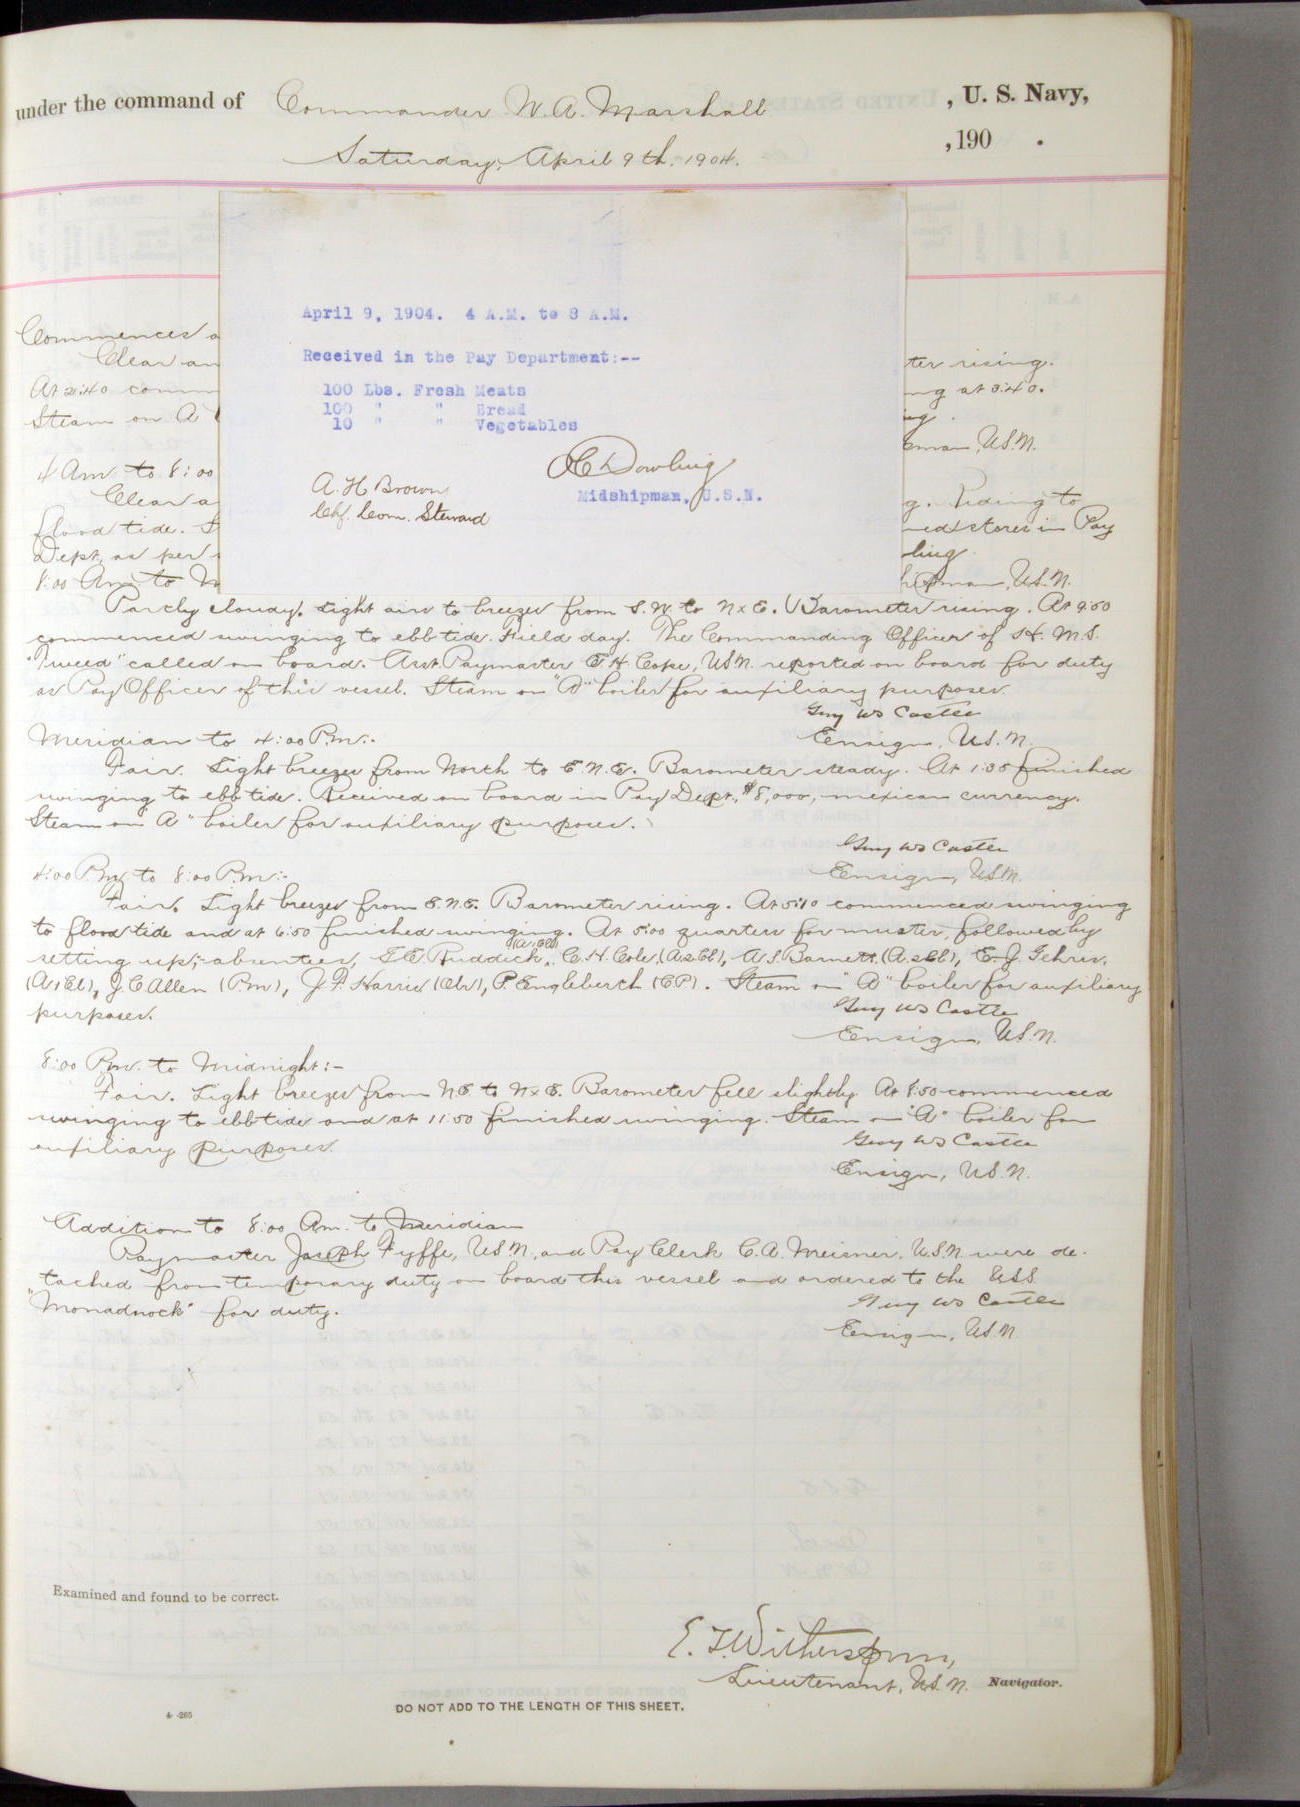 under the command of Commander W. A. Marshall, U. S. Navy,
Saturday, April 9th. 1904. , 190 .
April 9, 1904. 4 A.M. to 8 A.M.
Received in the Pay Department:--
100 Lbs. Fresh Meats
100 " " Bread
10 " " Vegetables
Dowling
A. H Brown Midshipman, U.S.N.
Chf. Com. Steward
Commences a
Clear an ter rising.
At 2:40 comm ng at 3:40.
Steam on A ing.
eman, U.S.N.
4 Am to 8:00
Clear a g. Riding to
flood tide. S ned stores in Pay
Dept. as per ling
8:00 Am to M hipman, U.S.N.
Partly cloudy. Light airs to breezes from S.W. to NxE. Barometer rising. At 9:50
commenced swinging to ebb tide. Field day. The Commanding Officer of H.M.S.
"Tweed" called on board. Asst. Paymaster E H Cope, USN. reported on board for duty
as Pay Officer of this vessel. Steam on "A" boiler for auxiliary purposes.
Guy WS Castle
Meridian to 4:00 P.m:- Ensign, U.S.N.
Fair. Light breezes from North to E.N.E. Barometer steady. At 1:35 finished
swinging to ebb tide. Received on board in Pay Dept., $8,000, mexican currency.
Steam on "A" boiler for auxiliary purposes.
Guy WS Castle
4:00 P.m. to 8:00 P.m:- Ensign, USN.
Fair. Light breezes from E.N.E. Barometer rising. At 5:10 commenced swinging
to flood tide and at 6:50 finished swinging. At 5:00 quarters for muster, followed by
setting up;- absentees, Ruddick, C. H. Cole, A S Barnett, E. J. Gehres,
J. C Allen (P.m), J. F. Harris, P. Engleberch (CP). Steam on "A" boiler for auxiliary
purposes. Guy WS Castle
Ensign, U.S.N.
8:00 P.m. to Midnight:-
Fair. Light breezes from N.E. to NxE. Barometer fell slightly. At 8:50 commenced
swinging to ebb tide and at 11:50 finished swinging. Steam on "A" boiler for
auxiliary purposes. Guy WS Castle
Ensign, U.S.N.
Addition to 8:00 Am. to Meridian
Paymaster Joseph Fyffe, U.S.N. and Pay Clerk C. A. Meisner, U.S.N. were de-
tached from temporary duty on board this vessel and ordered to the USS
"Monadnock" for duty. Guy WS Castle
Ensign, U.S.N.
Examined and found to be correct.
E. T. Witherspoon,
Lieutenant, U.S.N. Navigator.
DO NOT ADD TO THE LENGTH OF THIS SHEET.